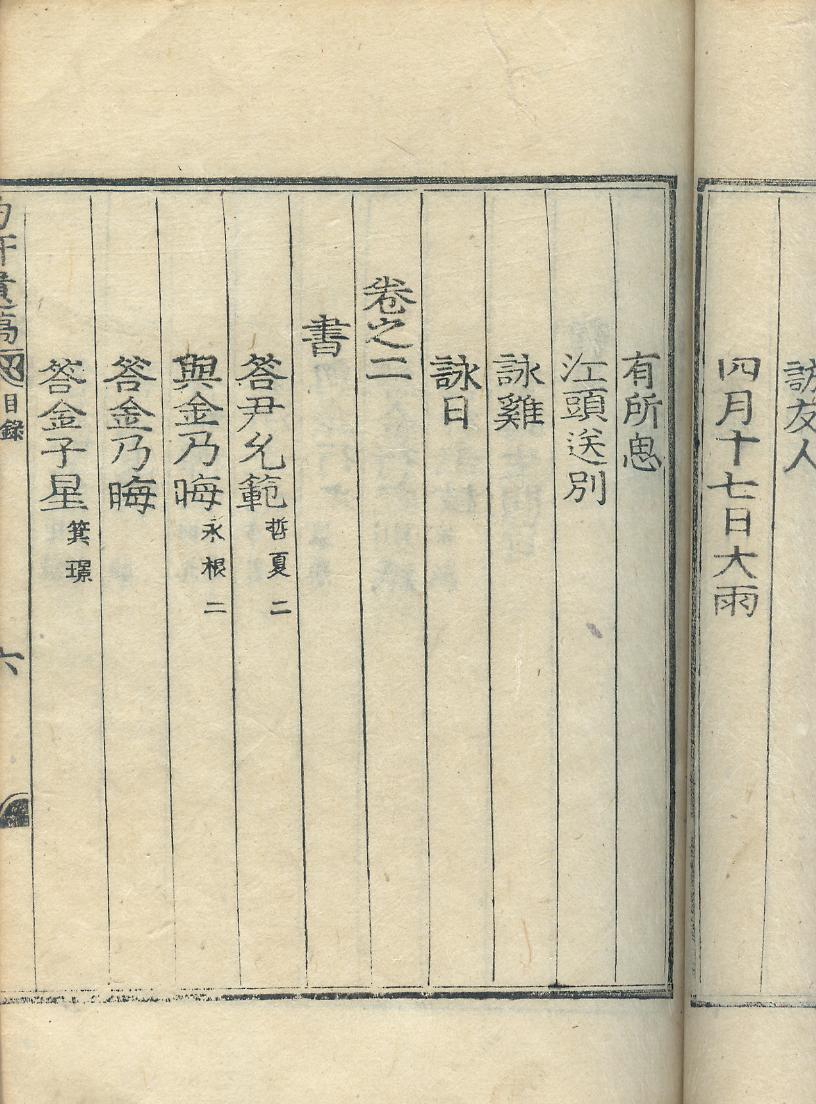 訪友人
四月十七日大雨
有所思
江頭送別
詠雞
詠日
卷之二
書
答尹允範 哲夏 二
與金乃晦 永根 二
答金乃晦
答金子星 箕璟
目錄 六